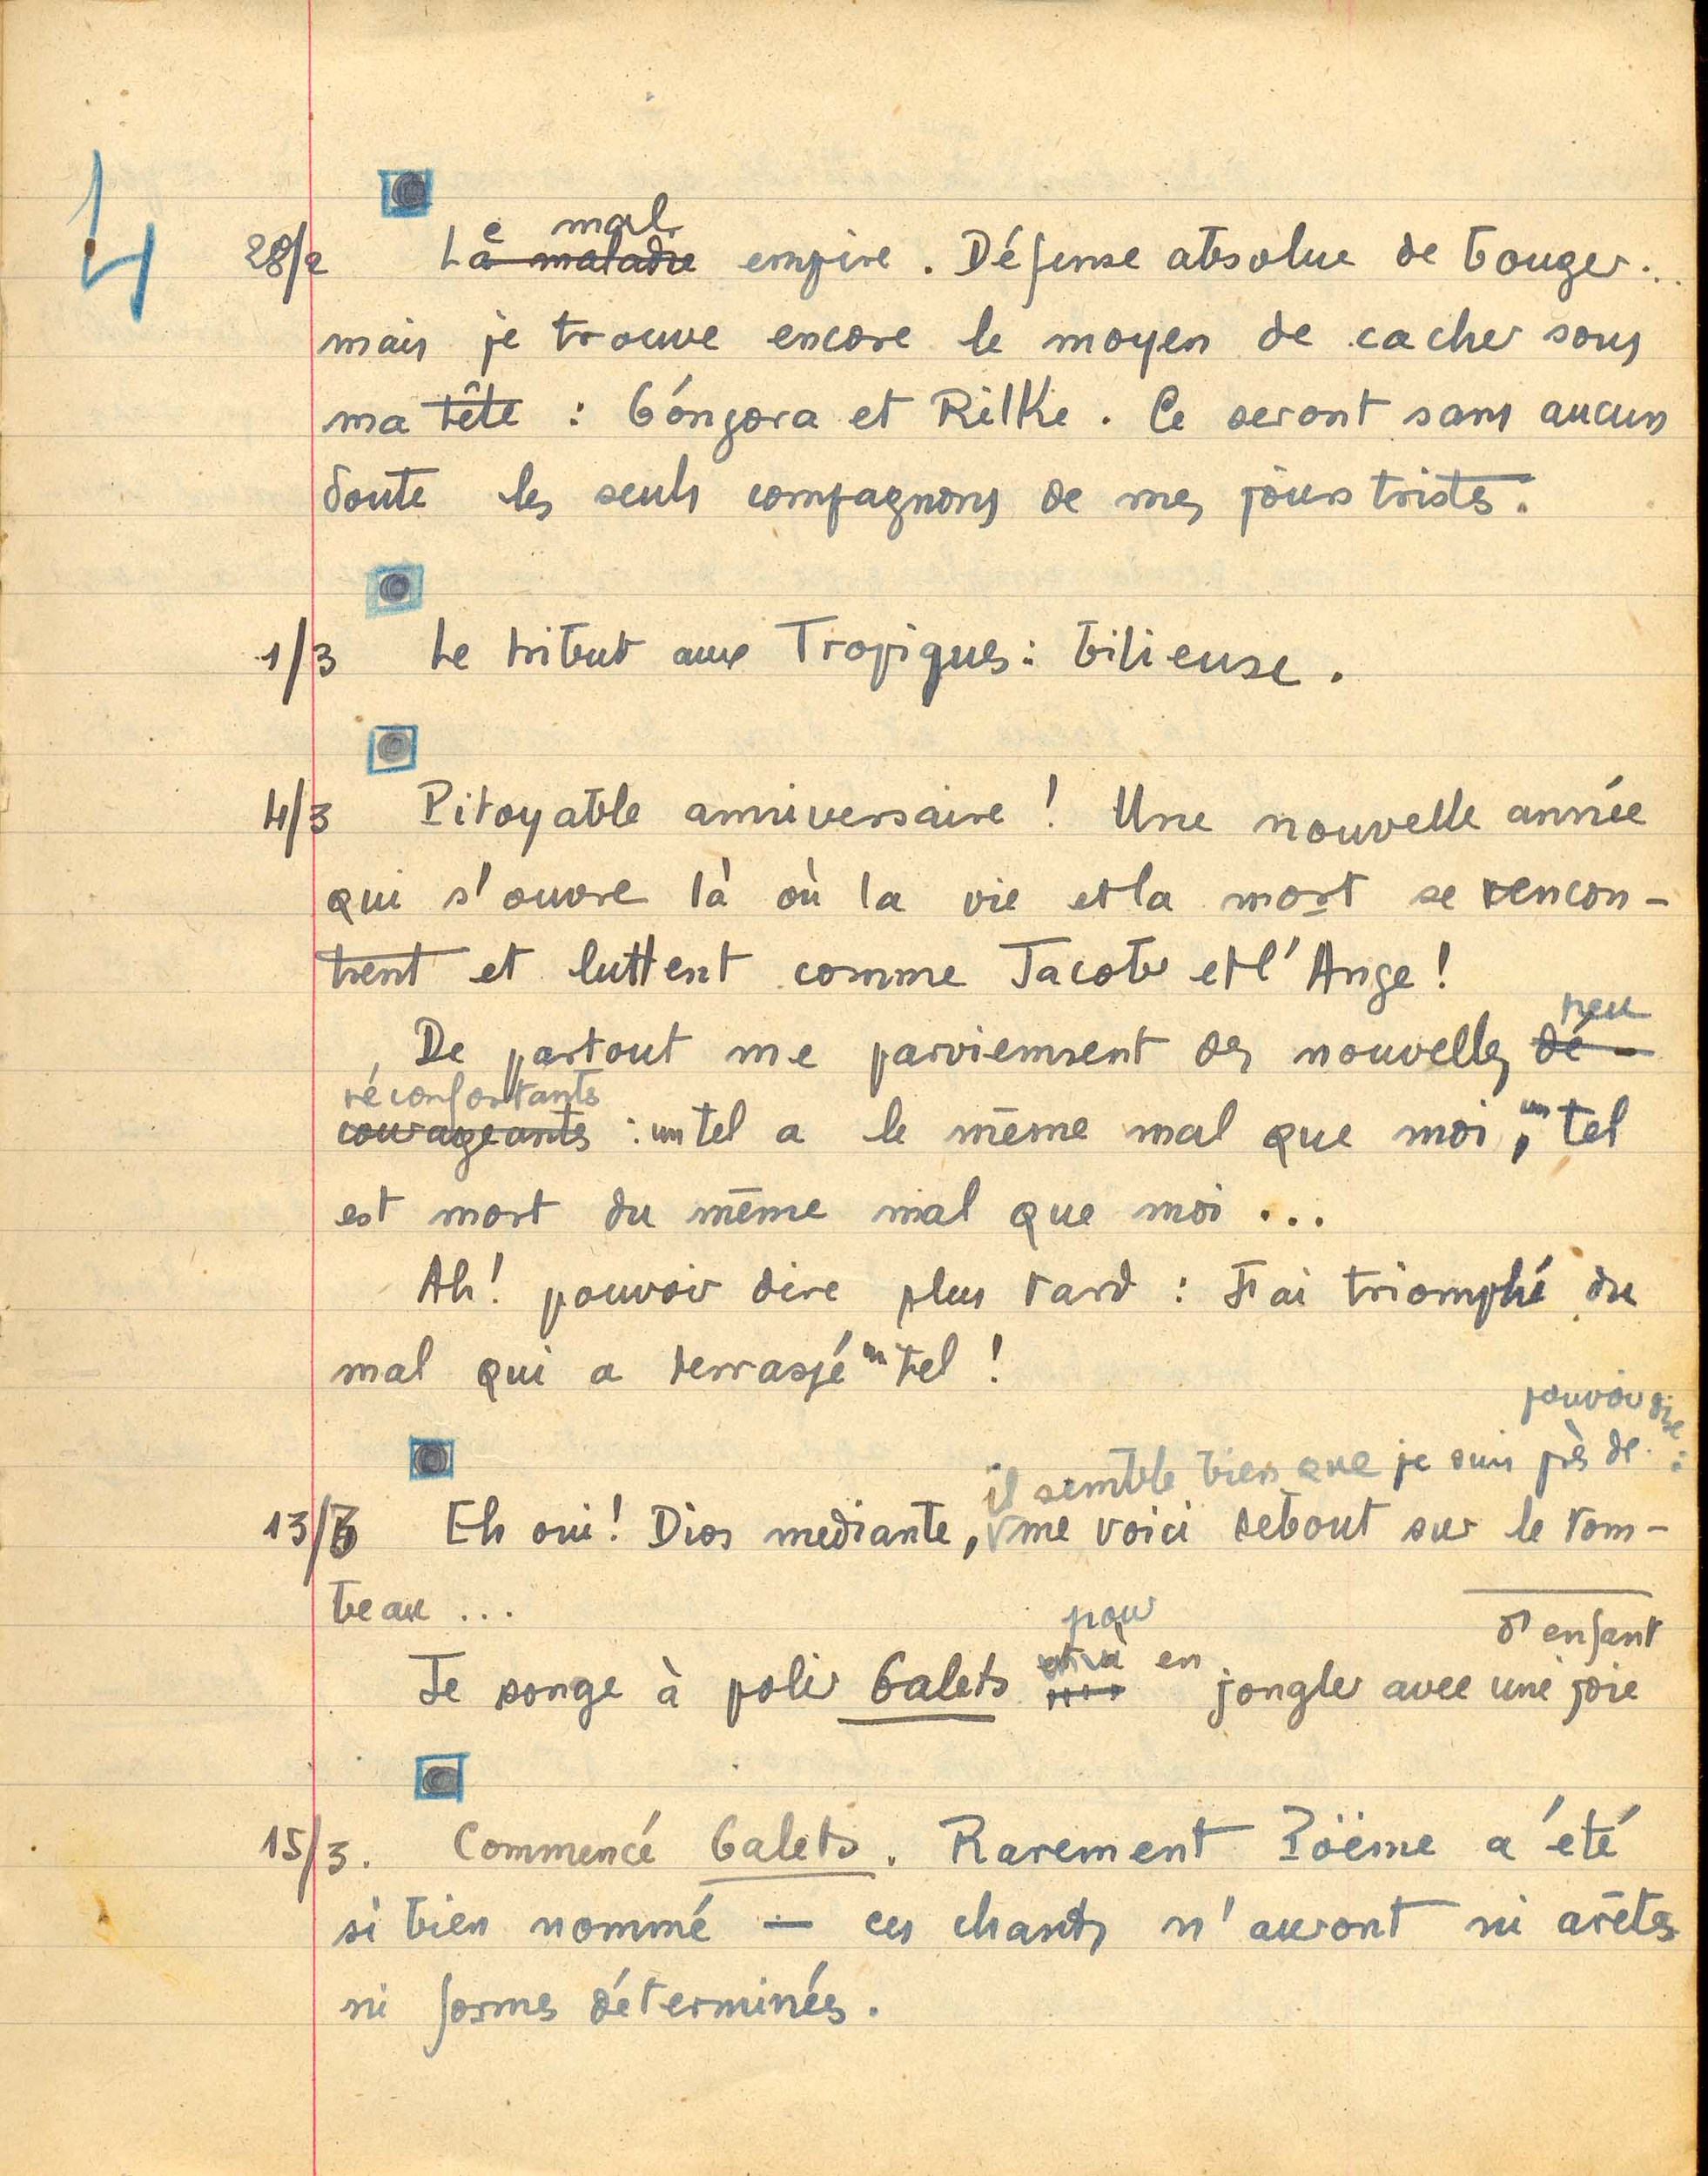 4
28/2 Le mal La maladie empire. Défense absolue de bouger..
mais je trouve encore le moyen de cacher sous
ma tête : Góngora et Rilke. Ce seront sans aucun
doute les seuls compagnons de mes jours tristes.
1/3 Le tribut aux Tropiques : bilieuse.
4/3 Pitoyable anniversaire ! Une nouvelle année
qui s'ouvre là où la vie et la mort se rencon-
trent et luttent comme Jacob et l'Ange !
peu
De partout me parviennent des nouvelles dé-
réconfortants
courageants : un tel a le même mal que moi, un tel
est mort du même mal que moi ...
Ah ! pouvoir dire plus tard : J'ai triomphé du
mal qui a terrassé un tel !
pouvoir dire :
il semble bien que je suis près de
13/3 Eh oui ! Dios mediante, me voici debout sur le tom-
beau ...
pour
d'enfant
Je songe à polir Galets et à en jongler avec une joie
15/3. Commencé Galets. Rarement Poëme a été
si bien nommé — ces chants n'auront ni arêtes
ni formes déterminées.